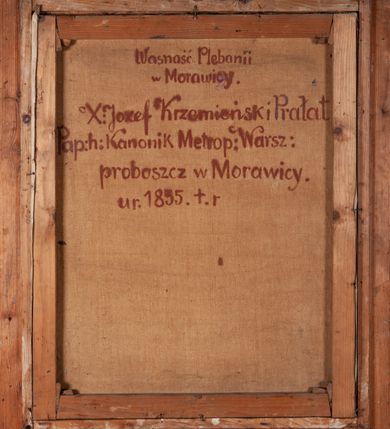 Wasność Plebanii
w Morawicy.
X. Jozef Krzemieński Prałat
Pap:h: Kanonik Metrop: Warsz:
proboszcz w Morawicy.
ur. 1835. †. r